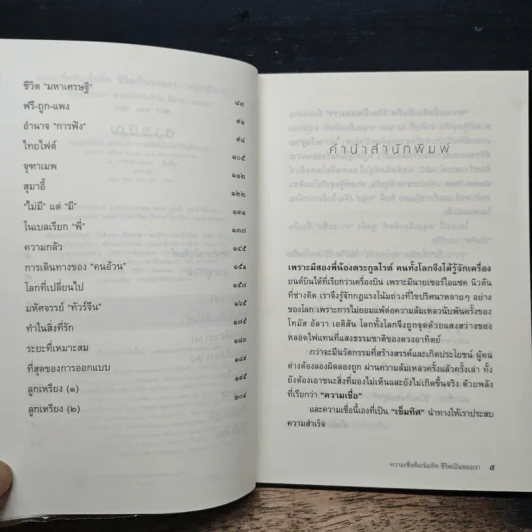 ชีวิต "มหาเศรษฐี" ๘๓
ฟรี-ถูก-แพง ๙๑
อำนาจ "การฟัง" ๙๘
ไทยไฟต์ ๑๐๕
จุฑาเมพ
สุมาอี้ ๑๒๒
"ไม่มี" แต่ "มี" ๑๓๑
โนเบลเรียก "พี่" ๑๓๗
ความกลัว
การเดินทางของ "คนอ้วน" ๑๕๑
โลกที่เปลี่ยนไป
มหัศจรรย์ "ทัวร์จีน"
ทำในสิ่งที่รัก ๑๗๕
ระยะที่เหมาะสม
ที่สุดของการออกแบบ
ลูกเหรียง (๑) ๑๙๕
ลูกเหรียง (๒) ๒๐๔
คำนำสำนักพิมพ์
เพราะมีสองพี่น้องตระกูลไรต์ คนทั้งโลกจึงได้รู้จักเครื่อง
ยนต์บินได้ที่เรียกว่าเครื่องบิน เพราะมีนายเซอร์ไอแซค นิวตัน
ที่ช่างคิด เราจึงรู้จักกฎแรงโน้มถ่วงที่ไขปริศนาหลายๆ อย่าง
ของโลก เพราะการไม่ยอมแพ้ต่อความล้มเหลวนับพันครั้งของ
โทมัส อัลวา เอดิสัน โลกทั้งโลกจึงถูกจุดด้วยแสงสว่างของ
หลอดไฟแทนที่แสงธรรมชาติของดวงอาทิตย์
กว่าจะมีนวัตกรรมที่สร้างสรรค์และเกิดประโยชน์ ผู้คน
ต่างต้องลองผิดลองถูก ผ่านความล้มเหลวครั้งแล้วครั้งเล่า ทั้ง
ยังต้องเอาชนะสิ่งที่มองไม่เห็นและยังไม่เกิดขึ้นจริง ด้วยพลัง
ที่เรียกว่า "ความเชื่อ"
และความเชื่อนี้เองที่เป็น "เข็มทิศ" นำทางให้เราประสบ
ความสำเร็จ
ความเชื่อคือเข็มทิศ ชีวิตเป็นของเรา ๕